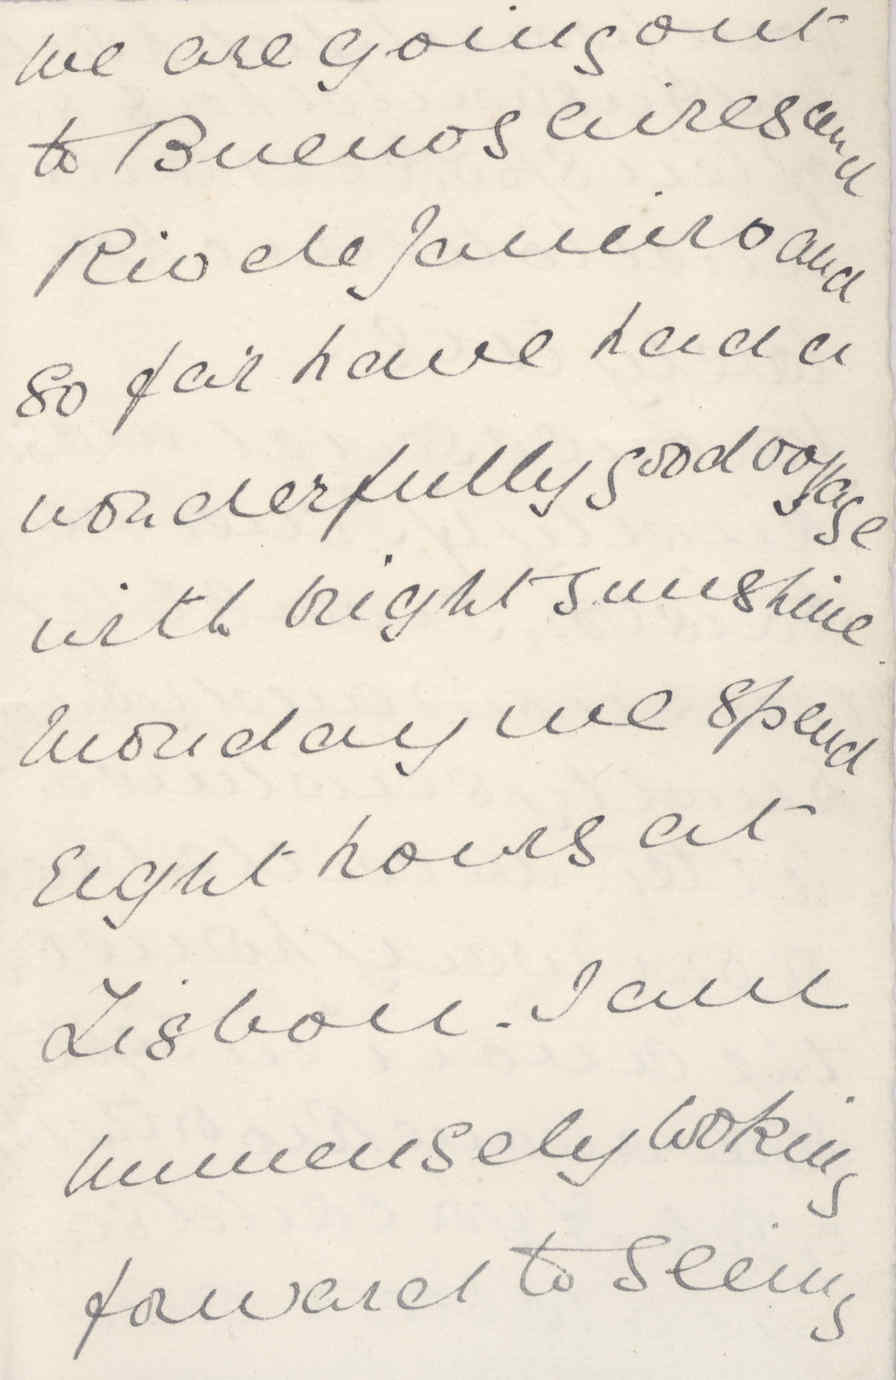 We are going out
to Buenos Aires and
Rio de Janeiro and
so far have had a
wonderfully good voyage
with bright sunshine.
Monday we spend
Eight hours at
Lisbon. I am
immensely looking
forward to seeing